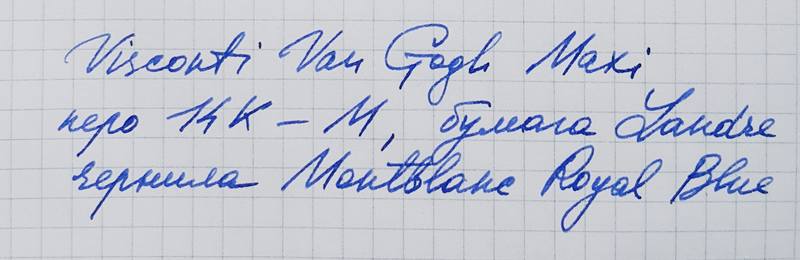 Visconti Van Gogh Maxi
перо 14К – М, бумага Landre
чернила Montblanc Royal Blue